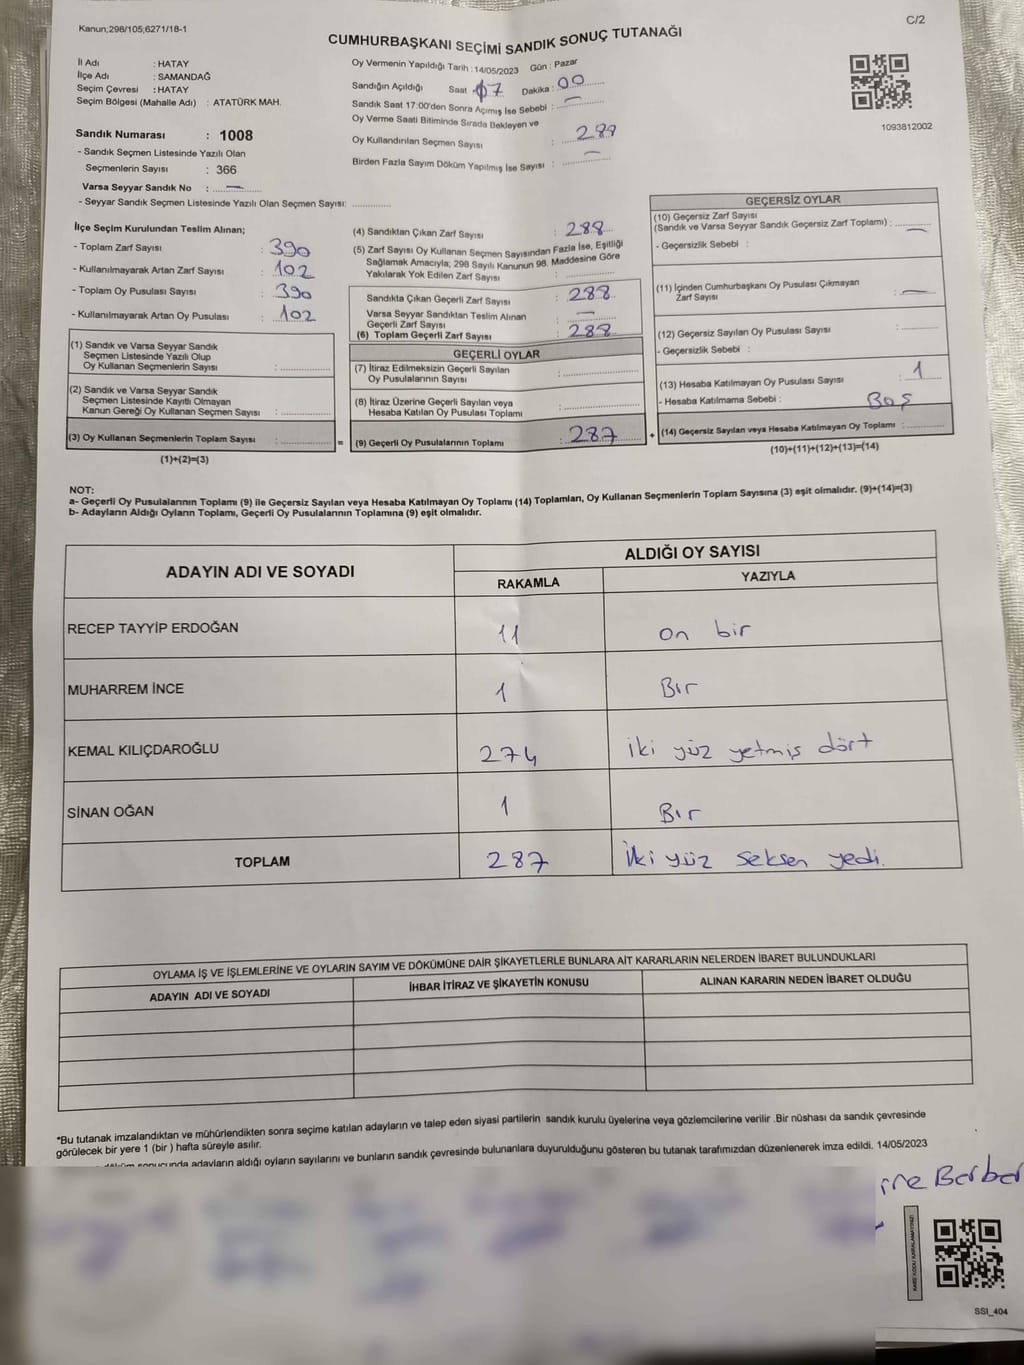 Kanun;298/105;6271/18-1
C/2
CUMHURBAŞKANI SEÇİMİ SANDIK SONUÇ TUTANAĞI
İl Adı : HATAY
İlçe Adı : SAMANDAĞ
Seçim Çevresi : HATAY
Seçim Bölgesi (Mahalle Adı) : ATATÜRK MAH.
Sandık Numarası : 1008
- Sandık Seçmen Listesinde Yazılı Olan
Seçmenlerin Sayısı : 366
Varsa Seyyar Sandık No : —
- Seyyar Sandık Seçmen Listesinde Yazılı Olan Seçmen Sayısı: ..............
Oy Vermenin Yapıldığı Tarih : 14/05/2023 Gün : Pazar
Sandığın Açıldığı Saat : 07 Dakika : 00
Sandık Saat 17:00'den Sonra Açımış İse Sebebi : —
Oy Verme Saati Bitiminde Sırada Bekleyen ve
Oy Kullandırılan Seçmen Sayısı : 289
Birden Fazla Sayım Döküm Yapılmış İse Sayısı : —
1093812002
İlçe Seçim Kurulundan Teslim Alınan;
- Toplam Zarf Sayısı : 390
- Kullanılmayarak Artan Zarf Sayısı : 102
- Toplam Oy Pusulası Sayısı : 390
- Kullanılmayarak Artan Oy Pusulası : 102
(1) Sandık ve Varsa Seyyar Sandık
Seçmen Listesinde Yazılı Olup
Oy Kullanan Seçmenlerin Sayısı : ..............
(2) Sandık ve Varsa Seyyar Sandık
Seçmen Listesinde Kayıtlı Olmayan
Kanun Gereği Oy Kullanan Seçmen Sayısı : ..............
(3) Oy Kullanan Seçmenlerin Toplam Sayısı : ..............
(1)+(2)=(3)
(4) Sandıktan Çıkan Zarf Sayısı : 288
(5) Zarf Sayısı Oy Kullanan Seçmen Sayısından Fazla İse, Eşitliği
Sağlamak Amacıyla, 298 Sayılı Kanunun 98. Maddesine Göre
Yakılarak Yok Edilen Zarf Sayısı : ..............
Sandıkta Çıkan Geçerli Zarf Sayısı : 288
Varsa Seyyar Sandıktan Teslim Alınan
Geçerli Zarf Sayısı : —
(6) Toplam Geçerli Zarf Sayısı : 288
GEÇERLİ OYLAR
(7) İtiraz Edilmeksizin Geçerli Sayılan
Oy Pusulalarının Sayısı : ..............
(8) İtiraz Üzerine Geçerli Sayılan veya
Hesaba Katılan Oy Pusulası Toplamı : ..............
= (9) Geçerli Oy Pusulalarının Toplamı : 287 +
GEÇERSİZ OYLAR
(10) Geçersiz Zarf Sayısı
(Sandık ve Varsa Seyyar Sandık Geçersiz Zarf Toplamı) : —
- Geçersizlik Sebebi :
(11) İçinden Cumhurbaşkanı Oy Pusulası Çıkmayan
Zarf Sayısı : —
(12) Geçersiz Sayılan Oy Pusulası Sayısı : ..............
- Geçersizlik Sebebi :
(13) Hesaba Katılmayan Oy Pusulası Sayısı : 1
- Hesaba Katılmama Sebebi : Boş
(14) Geçersiz Sayılan veya Hesaba Katılmayan Oy Toplamı : ..............
(10)+(11)+(12)+(13)=(14)
NOT:
a- Geçerli Oy Pusulalarının Toplamı (9) ile Geçersiz Sayılan veya Hesaba Katılmayan Oy Toplamı (14) Toplamları, Oy Kullanan Seçmenlerin Toplam Sayısına (3) eşit olmalıdır. (9)+(14)=(3)
b- Adayların Aldığı Oyların Toplamı, Geçerli Oy Pusulalarının Toplamına (9) eşit olmalıdır.
ADAYIN ADI VE SOYADI
ALDIĞI OY SAYISI
RAKAMLA YAZIYLA
RECEP TAYYİP ERDOĞAN 11 on bir
MUHARREM İNCE 1 Bir
KEMAL KILIÇDAROĞLU 274 iki yüz yetmiş dört
SİNAN OĞAN 1 Bir
TOPLAM 287 İki yüz seksen yedi.
OYLAMA İŞ VE İŞLEMLERİNE VE OYLARIN SAYIM VE DÖKÜMÜNE DAİR ŞİKAYETLERLE BUNLARA AİT KARARLARIN NELERDEN İBARET BULUNDUKLARI
ADAYIN ADI VE SOYADI İHBAR İTİRAZ VE ŞİKAYETİN KONUSU ALINAN KARARIN NEDEN İBARET OLDUĞU
*Bu tutanak imzalandıktan ve mühürlendikten sonra seçime katılan adayların ve talep eden siyasi partilerin sandık kurulu üyelerine veya gözlemcilerine verilir .Bir nüshası da sandık çevresinde
görülecek bir yere 1 (bir ) hafta süreyle asılır.
sonucunda adayların aldığı oyların sayılarını ve bunların sandık çevresinde bulunanlara duyurulduğunu gösteren bu tutanak tarafımızdan düzenlenerek imza edildi. 14/05/2023
Berber
SSI_404